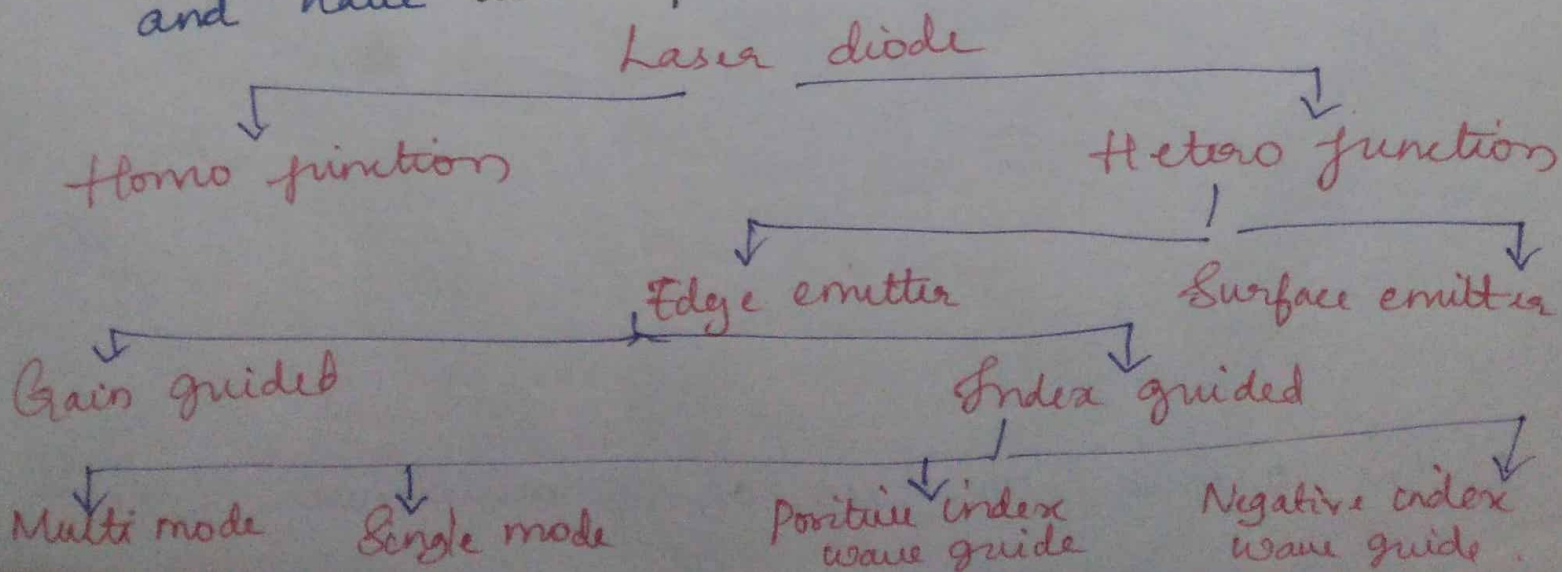 and
Laser diode
Homo junction Hetero junction
Edge emitter Surface emitter
Gain guided Index guided
Multi mode Single mode Positive index Negative index
wave guide wave guide.